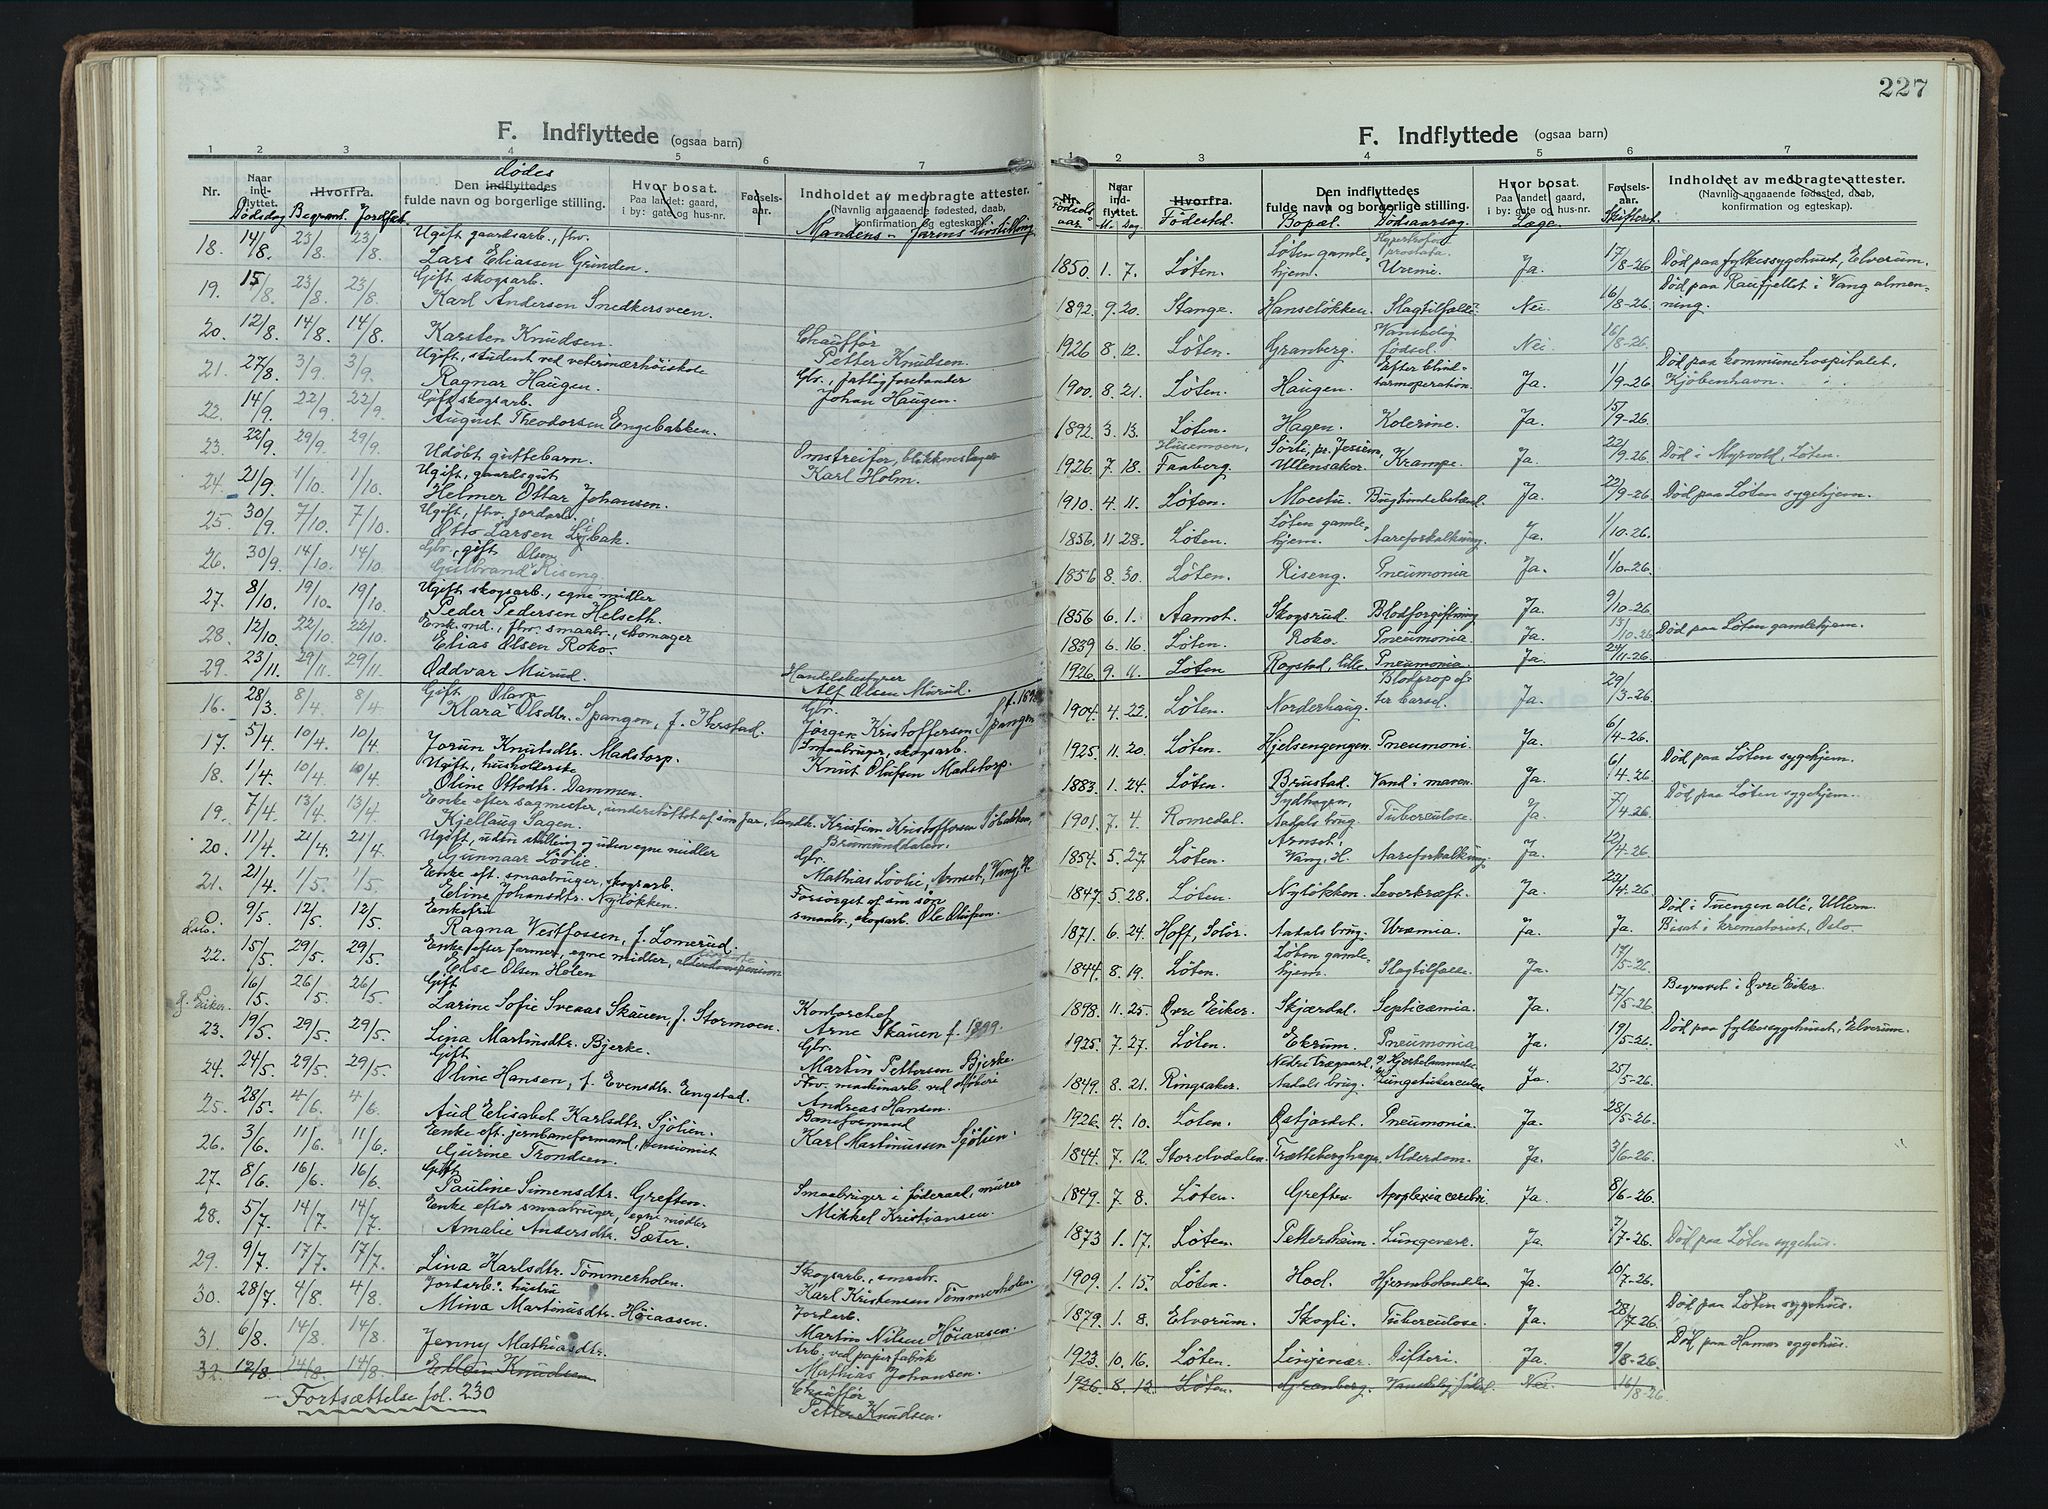 F. Indflyttede (ogsaa barn)
1 2 3 4 5 6 7
Nr. Naar indflyttet. Hvorfra. Den indflyttedes fulde navn og borgerlige stilling. Hvor bosat. Paa landet: gaard, i by: gate og hus-nr. Fødselsaar. Indholdet av medbragte attester. (Navnlig angaaende fødested, daab, konfirmation og egteskap).
Dødes
Dødsdag Begravet Jordfæst Mandens - farens livsstilling
Ugift gaardsarb., fhv.
18. 14/8. 23/8. 23/8. Lars Eliassen Grinden.
Gift skogsarb.
19. 15/8. 23/8. 23/8. Karl Andersen Snedkersveen.
Chauffør
20. 12/8. 14/8. 14/8. Karsten Knudsen. Petter Knudsen.
Ugift, student ved veterinærhøiskole Gbr., fattigforstander
21. 27/8. 3/9. 3/9. Ragnar Haugen. Johan Haugen.
Gift skogsarb.
22. 14/9. 22/9. 22/9. August Theodorsen Engebakken.
Omstreifer, blikkenslager
23. 22/9. 29/9. 29/9. Udøbt guttebarn. Karl Holm.
Ugift, gaardsgut
24. 21/9. 1/10. 1/10. Helmer Ottar Johansen.
Ugift, fhv. jordarb.
25. 30/9. 7/10. 7/10. Otto Larsen
Gbr., gift
26. 30/9. 14/10. 14/10. Gulbrand Olsen Riseng.
Ugift skogsarb., egne midler
27. 8/10. 19/10. 19/10. Peder Pedersen Helseth.
Enkmd., fhv. smaabr., skomager
28. 12/10. 22/10. 22/10. Elias Olsen Roko.
Handelsbestyrer
29. 23/11. 29/11. 29/11. Oddvar Murud. Alf Olsen Murud.
Gift Gbr.
16. 28/3. 8/4. 8/4. Klara Olava Olsdtr. Spangen, f. Jerstad. Jørgen Kristoffersen Spangen
Smaabruger, skogsarb.
17. 5/4. 10/4. 10/4. Jorun Knutsdtr. Madstorp. Knut Olufsen Madstorp.
Ugift, husholderske
18. 1/4. 10/4. 10/4. Oline Ottodtr. Dammen.
19. 7/4. 13/4. 13/4. Kjellaug Sagen. Kristian Kristoffersen Søbakken,
Brumunddalen.
Ugift, uten stilling og uden egne midler Gbr.
20. 11/4. 21/4. 21/4. Gunnaar Løvlie. Mathias Løvlie, Arnset, Vang, H.
Enke eft. smaabruger, skogsarb. Forsørget af sin søn
21. 21/4. 1/5. 1/5. Eline Johansdtr. Nyløkken. smaabr., skogsarb. Ole Olufsen.
Enkefru
Oslo. 9/5. 12/5. 12/5. Ragna Vestfossen, f. Lomerud.
Enke efter farmer, egne midler,
22. 15/5. 29/5. 29/5. Else Olsen Holen
Gift Kontorchef
Ø. Eiker. 16/5. 26/5. 26/5. Larine Sofie Sveaas Skauen, f. Stormoen. Arne Skauen f. 1899.
Gbr.
23. 19/5. 29/5. 29/5. Lina Martinsdtr. Bjerke. Martin Pettersen Bjerke.
Gift Fhv. maskinarb. ved støberi
24. 24/5. 29/5. 29/5. Oline Hansen, f. Evensdtr. Engstad. Andreas Hansen.
Baneformand
25. 28/5. 4/6. 4/6. Aud Elisabet Karlsdtr. Sjølien. Karl Martinussen Sjølien.
Enke eft. jernbaneformand, pensionist
26. 3/6. 11/6. 11/6. Gurine Trondsen.
Gift Smaabruger i føderaad, murer
27. 8/6. 16/6. 16/6. Pauline Simensdtr. Greften. Mikkel Kristiansen.
Enke efter smaabruger, egne midler
28. 5/7. 14/7. 14/7. Amalie Andersdtr. Sæter.
Skogsarb., smaabr.
29. 9/7. 17/7. 17/7. Lina Karlsdtr. Tømmerholen. Karl Kristensen Tømmerholen.
Jordarb.s hustru Jordarb.
30. 28/7. 4/8. 4/8. Mina Martinusdtr. Høiaasen. Martin Nilsen Høiaasen.
Arb. ved papirfabrik
31. 6/8. 14/8. 14/8. Jenny Mathiasdtr. Mathias Johansen.
Chauffør
32. 12/8. 14/8. 14/8. Ellen Knudsen Petter Knudsen.
Fortsættelse fol. 230
227
F. Indflyttede (ogsaa barn)
1 2 3 4 5 6 7
Nr. Naar indflyttet. Hvorfra. Den indflyttedes fulde navn og borgerlige stilling. Hvor bosat. Paa landet: gaard, i by: gate og hus-nr. Fødselsaar. Indholdet av medbragte attester. (Navnlig angaaende fødested, daab, konfirmation og egteskap).
Fødselsaar M. Dag Fødested. Bopæl. Dødsaarsag Læge. Skifteret.
1850. 1. 7. Løten. Løten gamlehjem. Hypertrofia prostata Uremi. Ja. 17/8-26. Død paa fylkessygehuset, Elverum.
1892. 9. 20. Stange. Hanseløkken. Slagtilfælde. Nei. 16/8-26. Død paa Raufjellet i Vang almenning.
1926. 8. 12. Løten. Granberg. Vanskelig fødsel. Nei. 16/8-26.
1900. 8. 21. Løten. Haugen. Efter blindtarmoperation. Ja. 1/9-26. Død paa kommunehospitalet, Kjøbenhavn.
1892. 3. 13. Løten. Hagen. Kolerine. Ja. 15/9-26.
1926. 7. 18. Faaberg. Sørli, pr. Jessheim, Ullensaker. Krampe. Ja. 22/9-26. Død i Myrvold, Løten.
1910. 4. 11. Løten. Moestu. Bughindebetænd. Ja. 22/9-26. Død paa Løten sygehjem.
1856. 11 28. Løten. Løten gamlehjem. Aareforkalkning. Ja. 1/10-26.
1856 8. 30. Løten. Riseng. Pneumonia Ja. 1/10-26.
1856 6. 1. Aamot. Skogsrud. Blodforgiftning Ja. 9/10-26.
1839 6. 16. Løten. Roko. Pneumonia. Ja. 13/10-26. Død paa Løten gamlehjem.
1926. 9. 11. Løten Rogstad, lille Pneumonia. Ja. 24/11-26.
1904. 4. 22. Løten. Norderhaug. Blodprop ef- ter barsel. Ja. 29/3-26.
1925. 11. 20. Løten. Hjelsengengen. Pneumoni. Ja. 6/4-26.
1883. 1. 24. Løten. Brustad. Vand i maven. Ja. 6/4-26. Død paa Løten sygehjem.
1901. 7. 4. Romedal. Sydhagen, Aadals brug. Tuberculose. Ja. 7/4-26. Død paa Løten sygehjem.
1854. 5. 27. Løten. Arnset, Vang, H. Aareforkalkning. Ja. 12/4-26.
1847. 5. 28. Løten. Nyløkken. Leverkræft. Ja. 23/4-26.
1871. 6. 24. Hoff, Solør. Aadals brug. Uræmia. Ja. Ja. Død i Tuengen allé, Ullern. Bisat i krematoriet, Oslo.
1844. 8. 19. Løten. Løten gamlehjem. Slagtilfælle. Ja. 17/5-26.
1898. 11. 25. Øvre Eiker. Skjærdal. Septicæmia. Ja. 17/5-26. Begravet i Øvre Eiker.
1925. 7. 27. Løten. Ekrum. Pneumonia Ja. 19/5-26. Død paa fylkessygehuset, Elverum.
1849. 8. 21. Ringsaker. Nedre Træggaard, Aadals brug. Lungetuberculose Ja. 25/5-26.
1926. 4. 10. Løten. Østjordet. Pneumonia. Ja. 28/5-26.
1844. 7. 12. Storelvdalen. Trætteberghagen. Alderdom. Ja. 3/6-26.
1849. 7. 8. Løten. Greften. Apoplexia cerebri. Ja. 8/6-26.
1873 1. 17. Løten. Petterheim. Lungeværk. Ja. 7/7-26. Død paa Løten sygehus.
1909. 1. 15. Løten. Hod. Ja. 10/7-26.
1879. 1. 8. Elverum. Skogli. Tuberculose. Ja. 28/7-26. Død paa Løten sygehus.
1923. 10. 16. Løten. Linjenær. Difteri. Ja. 9/8-26. Død paa Hamar sygehus.
1926. 8. 12. Løten. Granberg. Vanskelig fødsel. Nei. 16/8-26.